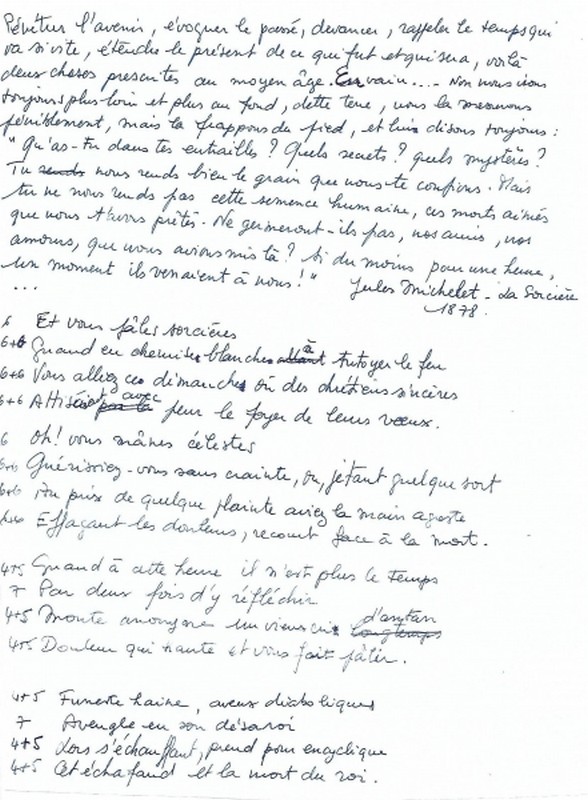 Pénétrer l'avenir, évoquer le passé, devancer, rappeler le temps qui
va si vite, étendre le présent de ce qui fut et qui sera, voilà
deux choses proscrites au moyen âge. En vain.... Non nous irons
toujours plus loin et plus au fond, cette terre, nous la mesurons
péniblement, mais la frappons du pied, et lui disons toujours :
"Qu'as-tu dans tes entrailles ? Quels secrets ? quels mystères ?
Tu rends nous rends bien le grain que nous te confions. Mais
tu ne nous rends pas cette semence humaine, ces morts aimés
que nous t'avons prêtés. Ne germeront-ils pas, nos amis, nos
amours, que nous avions mis là ? Si du moins pour une heure,
un moment ils venaient à nous !" Jules Michelet - La Sorcière
... 1878.
6 Et vous pâles sorcières
6+6 Quand en chemises blanches allant à tutoyer le feu
6+6 Vous alliez ces dimanches où des chrétiens sincères
6+6 Attisaient avec peur le foyer de leurs vœux.
6 Oh! vous mânes célestes
6+6 Guérissiez-vous sans crainte, ou, jetant quelque sort
6+6 Au prix de quelque plainte aviez la main agreste
6+6 Effaçant les douleurs, recourt face à la mort.
4+5 Quand à cette heure il n'est plus le temps
7 Par deux fois d'y réfléchir
4+5 Monte anonyme un vieux cri longtemps d'antan
4+5 Douleur qui hante et vous fait pâlir.
4+5 Funeste haine, aveux diaboliques
7 Aveugle en son désarroi
4+5 Lors s'échauffant, prend pour encyclique
4+5 Cet échafaud et la mort du roi.